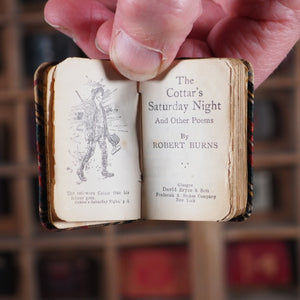 The toil-worn Cottar frae his
labour goes
Cottar's Saturday Night, p. 8.
The
Cottar's
Saturday Night
And Other Poems
By
ROBERT BURNS
Glasgow
David Bryce & Son
Frederick A. Stokes Company
New York